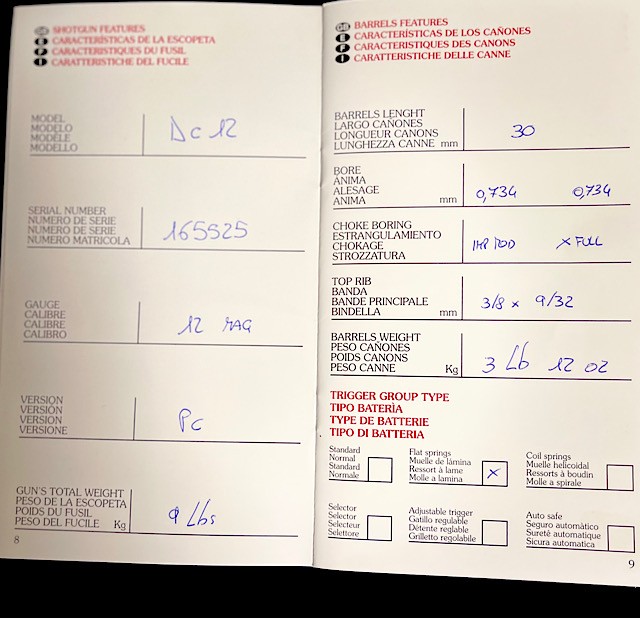 GB SHOTGUN FEATURES
E CARACTERÍSTICAS DE LA ESCOPETA
F CARACTERISTIQUES DU FUSIL
I CARATTERISTICHE DEL FUCILE
MODEL
MODELO
MODÈLE
MODELLO
Dc 12
SERIAL NUMBER
NUMERO DE SERIE
NUMERO DE SERIE
NUMERO MATRICOLA
165525
GAUGE
CALIBRE
CALIBRE
CALIBRO
12 MAG
VERSION
VERSIÓN
VERSION
VERSIONE
Pc
GUN'S TOTAL WEIGHT
PESO DE LA ESCOPETA
POIDS DU FUSIL
PESO DEL FUCILE Kg
9 Lbs
8
GB BARRELS FEATURES
E CARACTERÍSTICAS DE LOS CAÑONES
F CARACTERISTIQUES DES CANONS
I CARATTERISTICHE DELLE CANNE
BARRELS LENGHT
LARGO CAÑONES
LONGUEUR CANONS
LUNGHEZZA CANNE mm
30
BORE
ANIMA
ALESAGE
ANIMA mm
0,734 0,734
CHOKE BORING
ESTRANGULAMIENTO
CHOKAGE
STROZZATURA
IMP MOD X FULL
TOP RIB
BANDA
BANDE PRINCIPALE
BINDELLA mm
3/8 x 9/32
BARRELS WEIGHT
PESO CAÑONES
POIDS CANONS
PESO CANNE Kg
3 Lb 12 oz
TRIGGER GROUP TYPE
TIPO BATERÌA
TYPE DE BATTERIE
TIPO DI BATTERIA
Standard
Normal
Standard
Normale
Flat springs
Muelle de làmina
Ressort à lame
Molle a lamina
X
Coil springs
Muelle helicoidal
Ressorts à boudin
Molle a spirale
Selector
Selector
Selecteur
Selettore
Adjustable trigger
Gatillo regulable
Détente reglable
Grilletto regolabile
Auto safe
Seguro automàtico
Sureté automatique
Sicura automatica
9